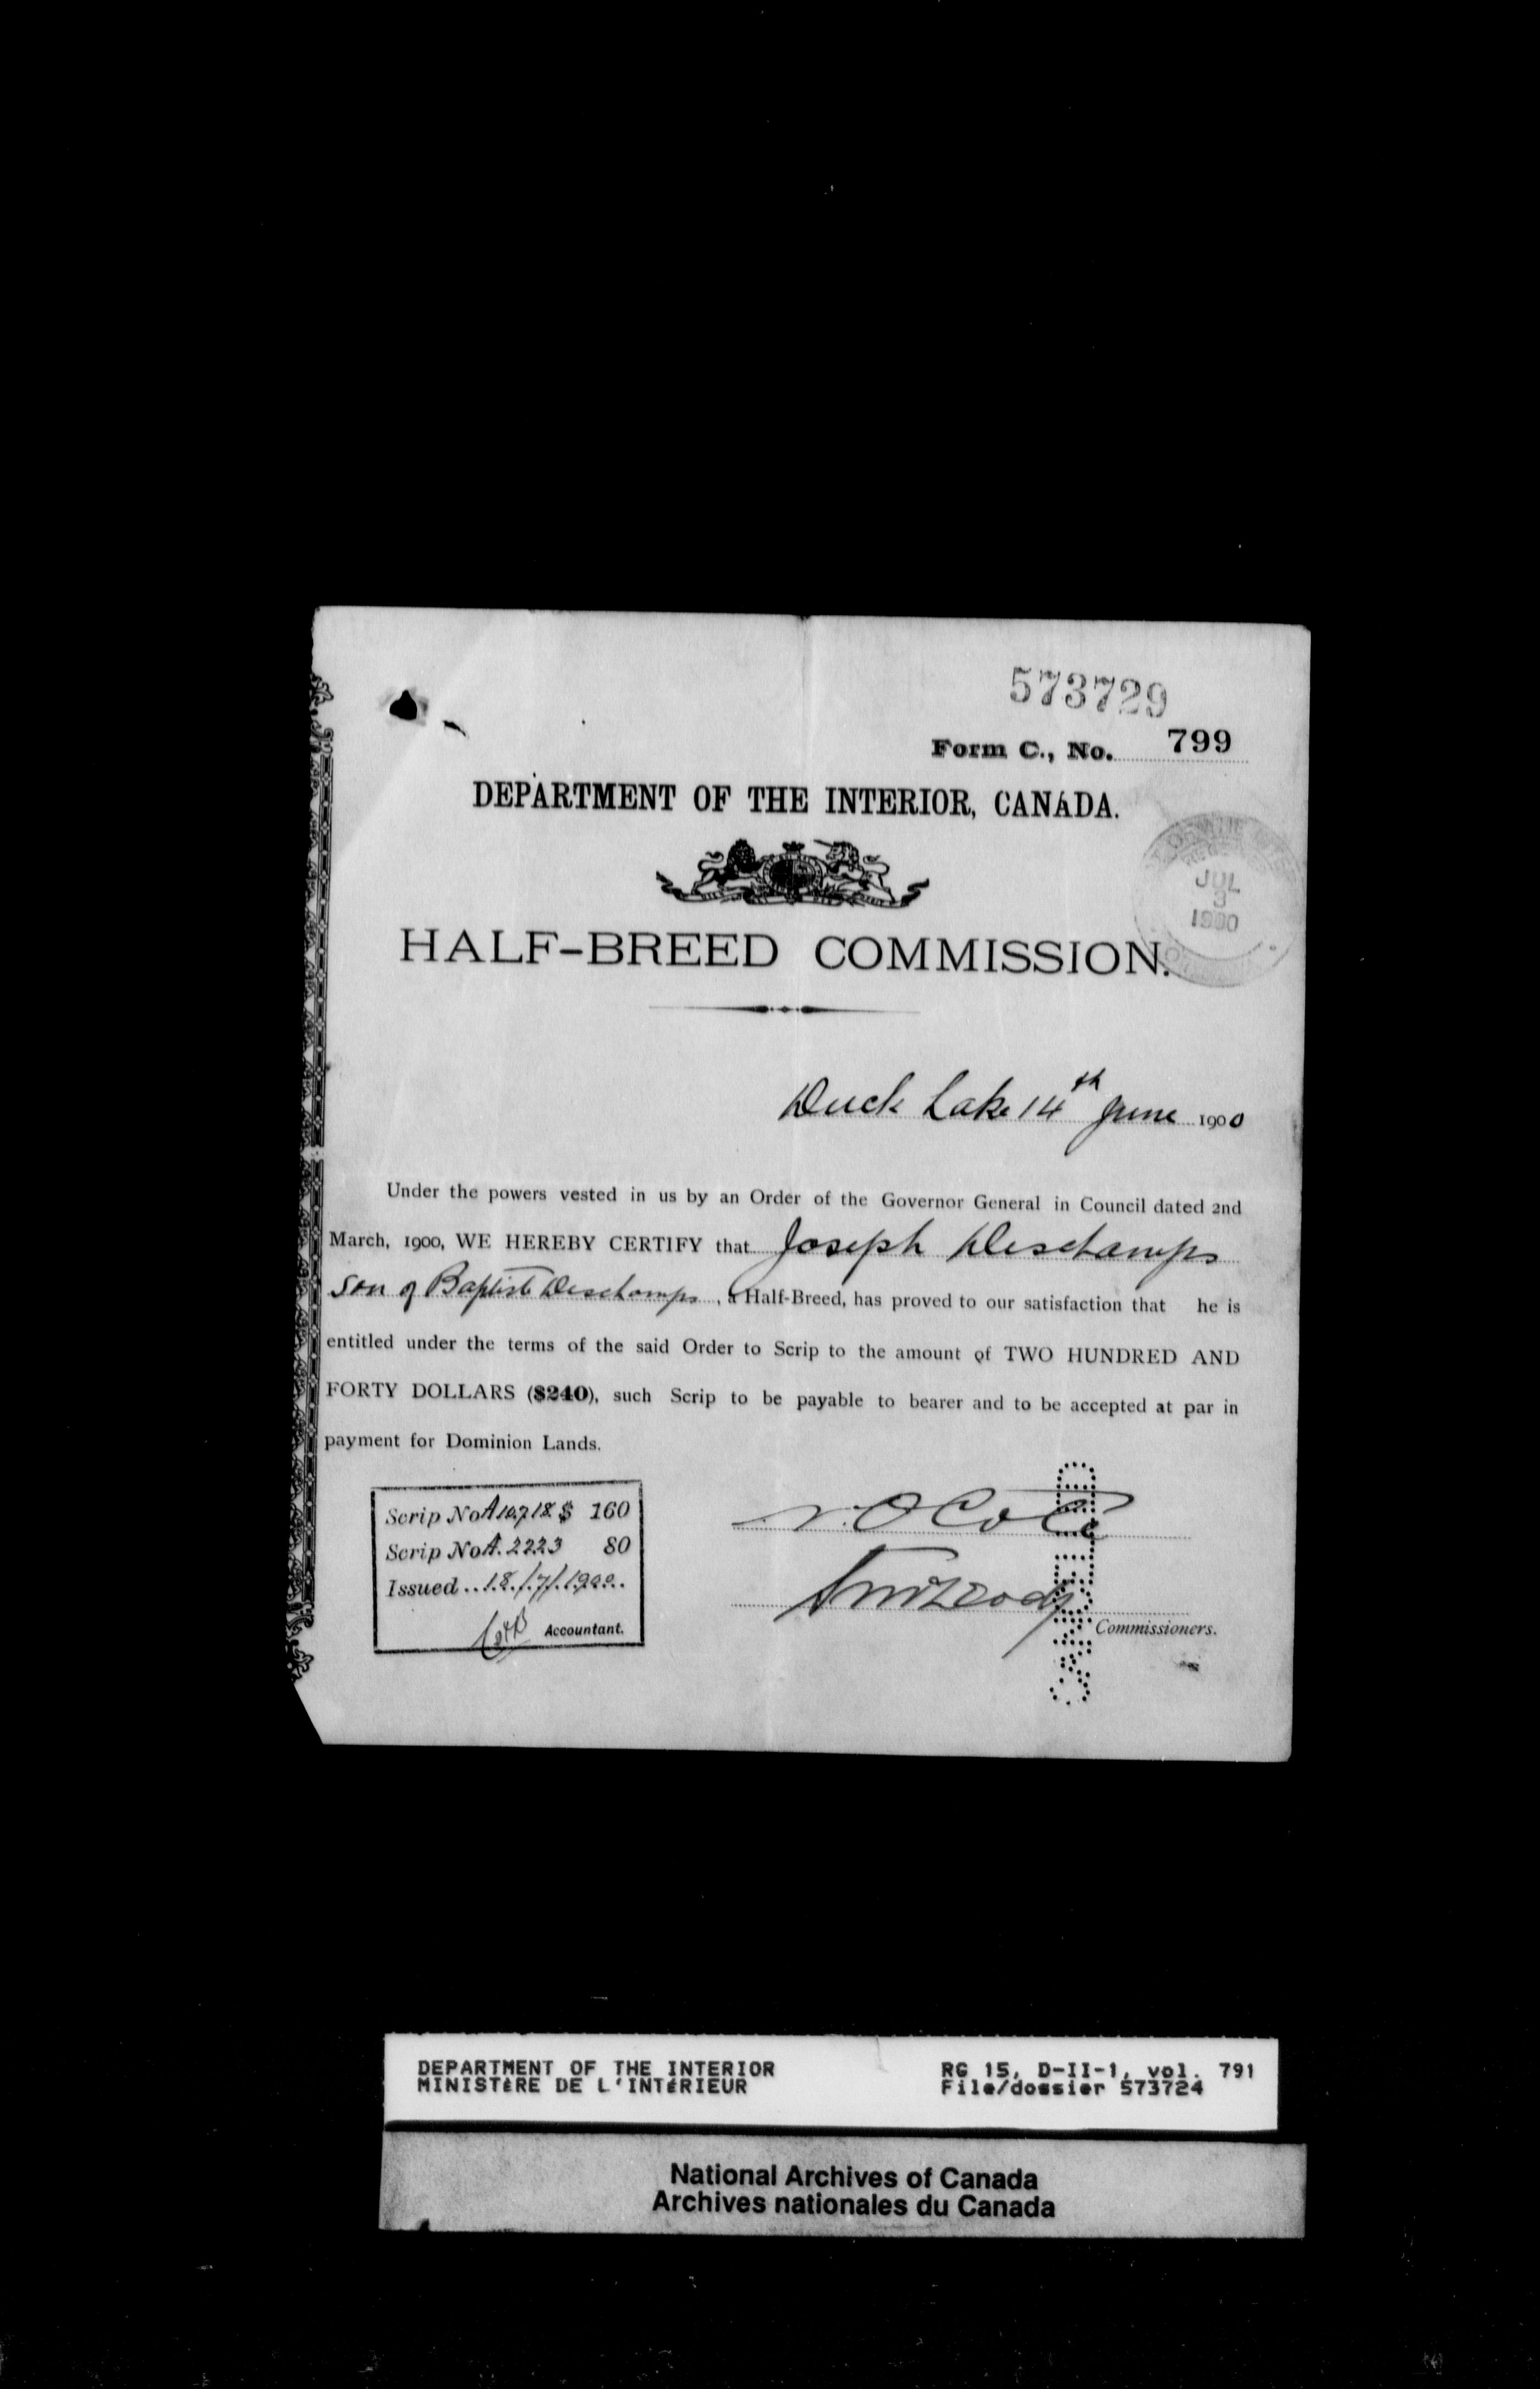 573729
Form C., No. 799
DEPARTMENT OF THE INTERIOR, CANADA.
JUL
3
1900
HALF-BREED COMMISSION.
Duck Lake 14th June 1900
Under the powers vested in us by an Order of the Governor General in Council dated 2nd
March, 1900, WE HEREBY CERTIFY that Joseph Deschamps
son of Baptiste Deschamps, a Half-Breed, has proved to our satisfaction that he is
entitled under the terms of the said Order to Scrip to the amount of TWO HUNDRED AND
FORTY DOLLARS ($240), such Scrip to be payable to bearer and to be accepted at par in
payment for Dominion Lands.
Scrip No A10718 $ 160
Scrip No A.2223 80
Issued..18./7/.1900..
Accountant.
Commissioners.
DEPARTMENT OF THE INTERIOR
MINISTÈRE DE L'INTÉRIEUR
RG 15, D-II-1, vol. 791
File/dossier 573724
National Archives of Canada
Archives nationales du Canada